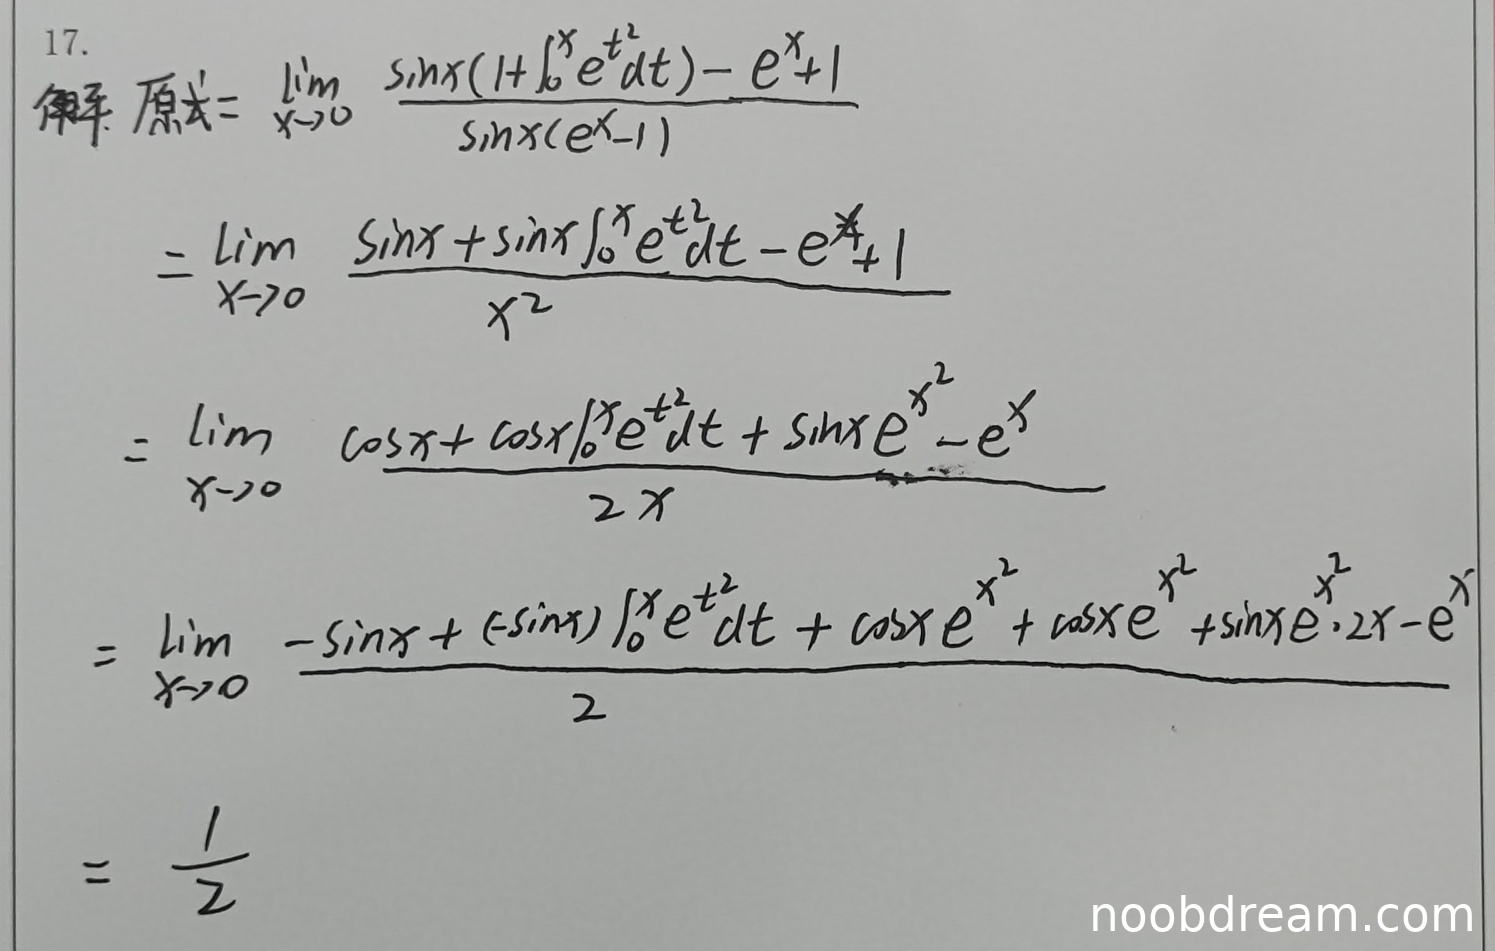 17.
解 原式 = lim x→0 sinx(1+∫₀ˣ e^{t²}dt) − eˣ+1 / sinx(eˣ−1)
= lim x→0 sinx + sinx∫₀ˣ e^{t²}dt − eˣ + 1 / x²
= lim x→0 cosx + cosx∫₀ˣ e^{t²}dt + sinx e^{x²} − eˣ / 2x
= lim x→0 −sinx + (−sinx)∫₀ˣ e^{t²}dt + cosx e^{x²} + cosx e^{x²} + sinx e^{x²}·2x − eˣ / 2
= 1/2
noobdream.com